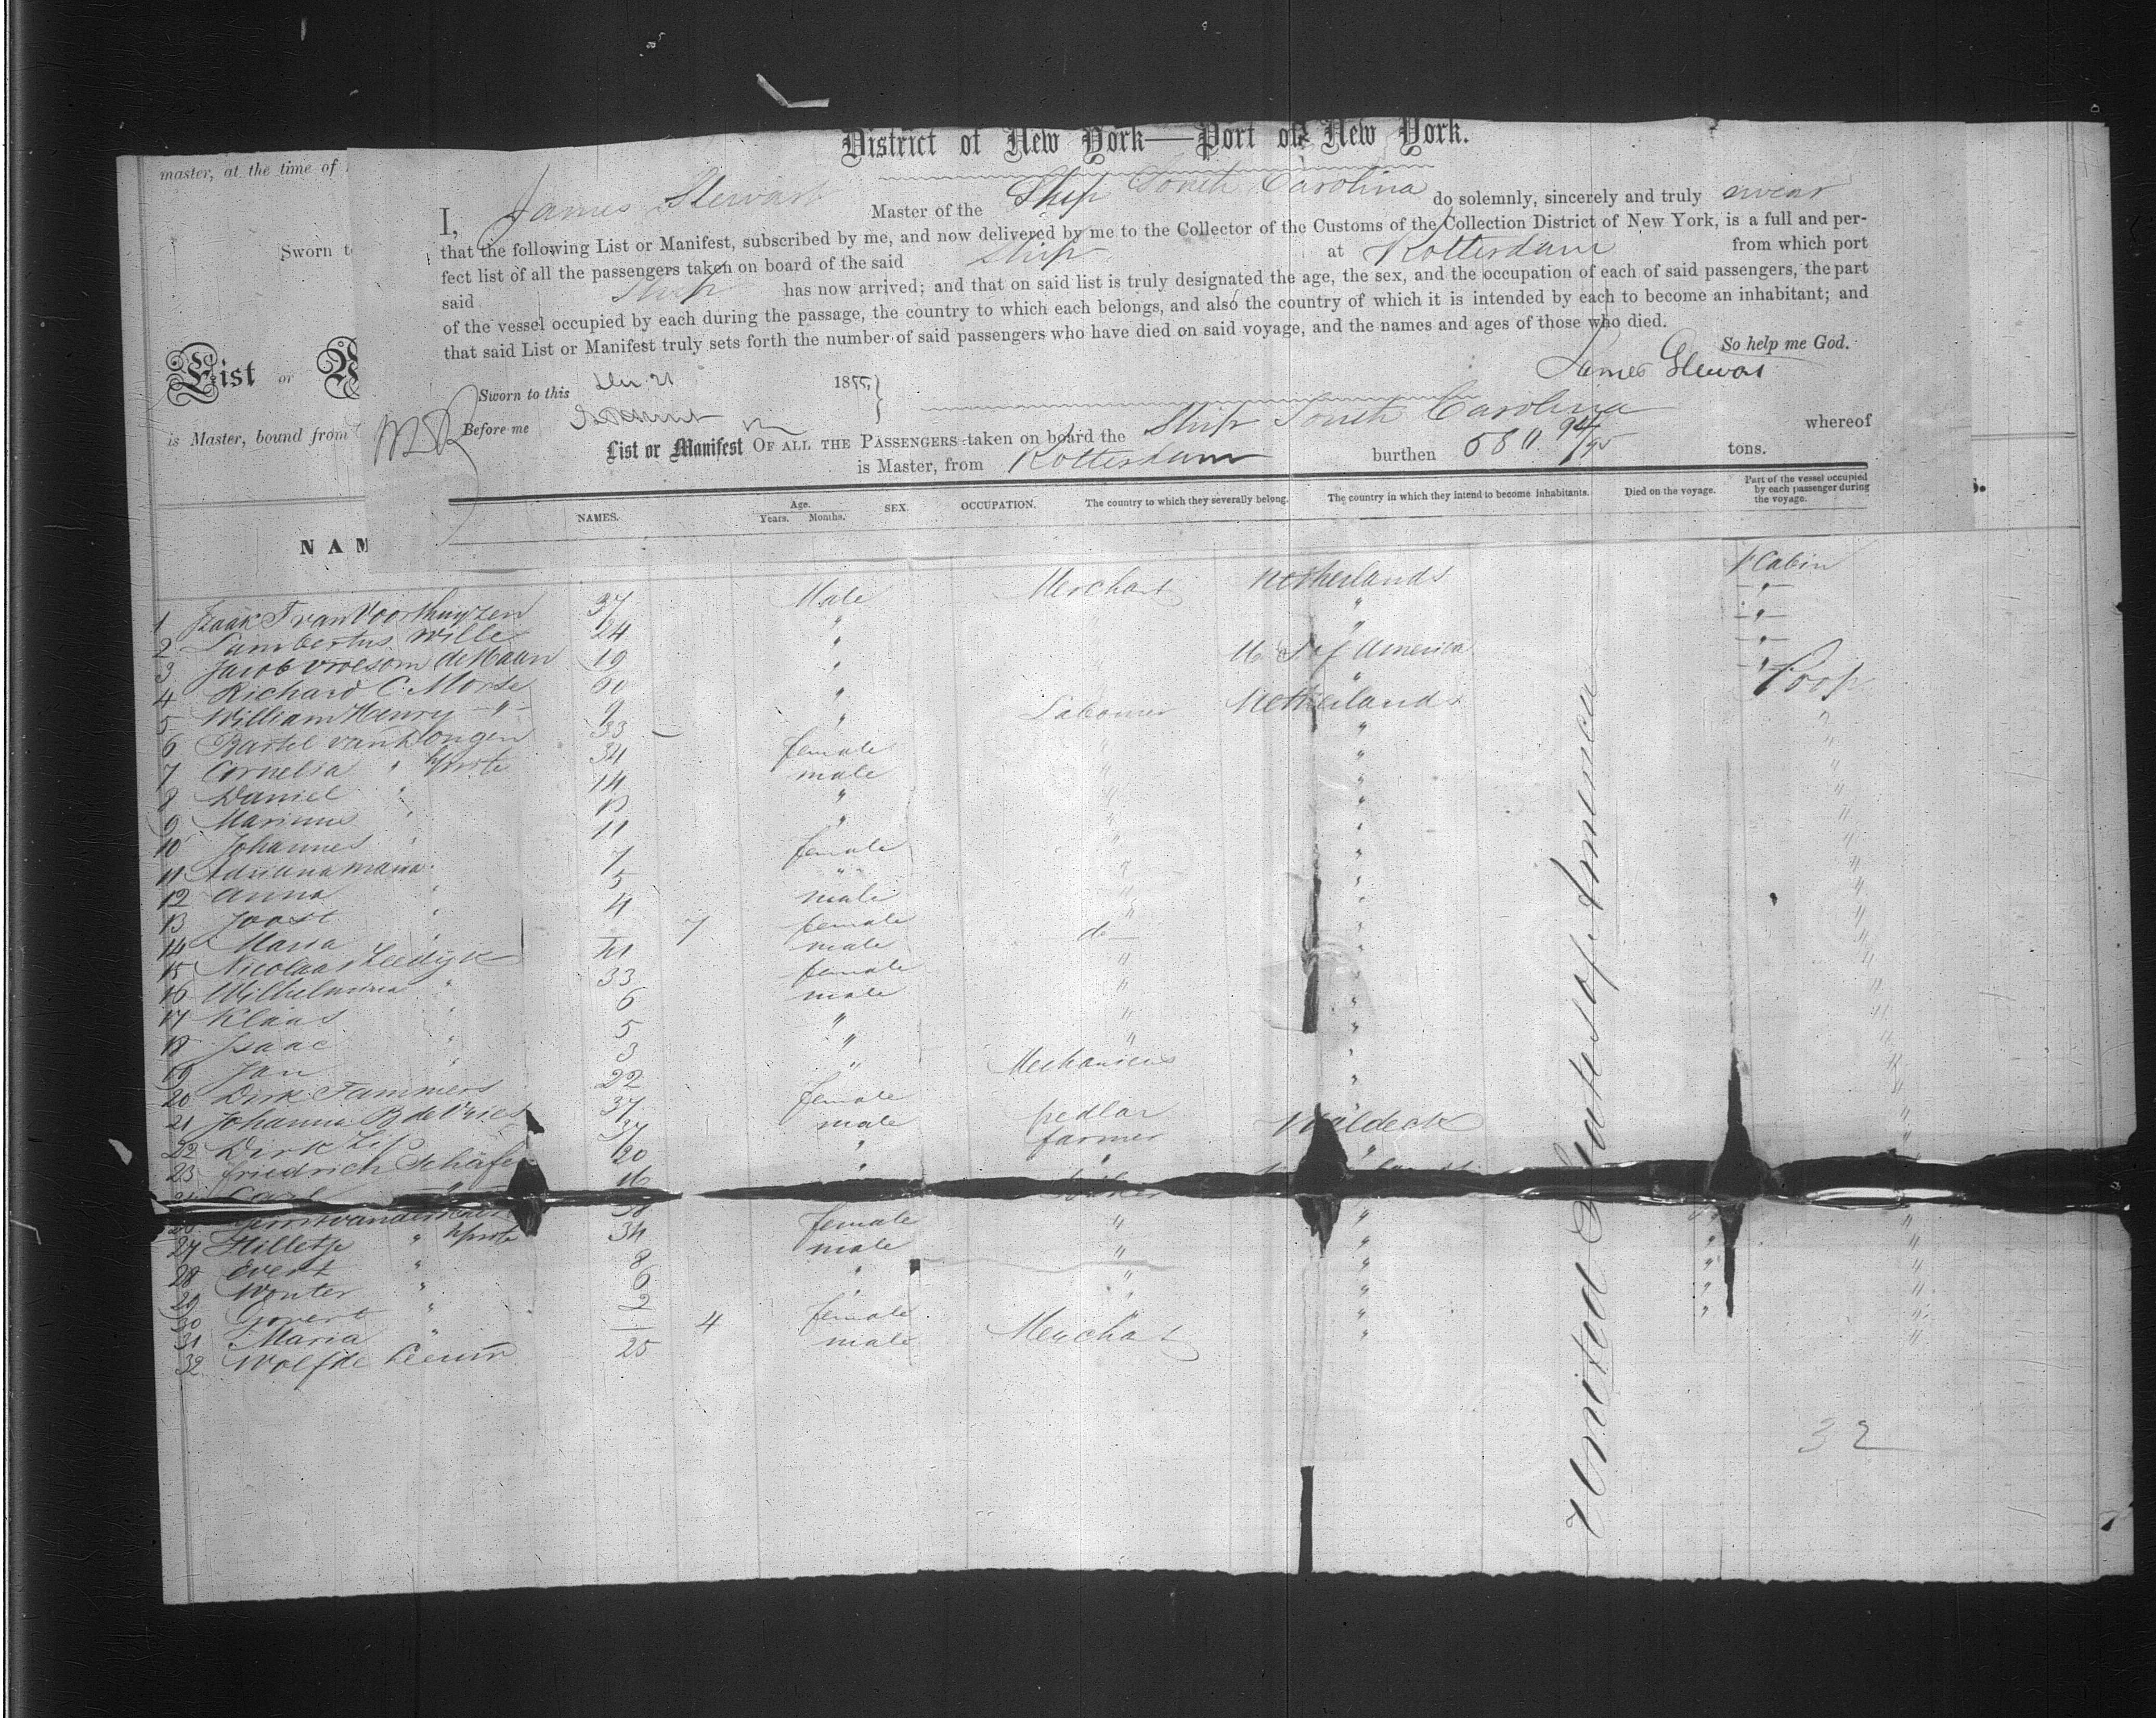 master, at the time of
Sworn to
List or
is Master, bound from
NAM
District of New York—Port of New York.
I, James Stewart Master of the Ship South Carolina do solemnly, sincerely and truly swear
that the following List or Manifest, subscribed by me, and now delivered by me to the Collector of the Customs of the Collection District of New York, is a full and per-
fect list of all the passengers taken on board of the said Ship at Rotterdam from which port
said Ship has now arrived; and that on said list is truly designated the age, the sex, and the occupation of each of said passengers, the part
of the vessel occupied by each during the passage, the country to which each belongs, and also the country of which it is intended by each to become an inhabitant; and
that said List or Manifest truly sets forth the number of said passengers who have died on said voyage, and the names and ages of those who died.
So help me God.
Sworn to this 21 1855 James Stewart
Before me
List or Manifest OF ALL THE PASSENGERS taken on board the Ship South Carolina whereof
is Master, from Rotterdam burthen 580 94/95 tons.
NAMES. Age. Years. Months. SEX. OCCUPATION. The country to which they severally belong. The country in which they intend to become inhabitants. Died on the voyage. Part of the vessel occupied by each passenger during the voyage.
1 Izaak T van Voorthuyzen 37 Male Merchant Netherlands Cabin
2 Lambertus Wille 24 " " "
3 Jacob Vroesom de Haan 19 " " "
4 Richard C. Morse 60 " U. S. of America "
5 William Henry " 9 " " "
6 Bartel van Dongen 33 " Labourer Netherlands Poop
7 Cornelia " 34 female " " "
8 Daniel " 14 male " " "
9 Marinus " 13 " " " "
10 Johannes " 11 " " " "
11 Adriana Maria " 7 female " " "
12 Anna " 5 " " " "
13 Joost " 4 male " " "
14 Maria " 7 female " " "
15 Nicolaas Leedijk 41 male do " "
16 Wilhelmina " 33 female " " "
17 Klaas " 6 male " " "
18 Isaac " 5 " " " "
19 Jan " 3 " " " "
20 Dirk Tammers 22 " Mechanicus " "
21 Johanna B de Vries 37 female " "
22 Dirk Zip 37 male pedlar " "
23 Friedrich Schäfer 20 " farmer Waldeck "
Carl 16 " " "
27 Hilletje " 34 female " " "
28 Evert " 8 male " " "
29 Wouter " 6 " " " "
30 Govert " 2 " " " "
31 Maria " 4 female " "
32 Wolf de Leeuw 25 male Merchant " "
United States of America
32